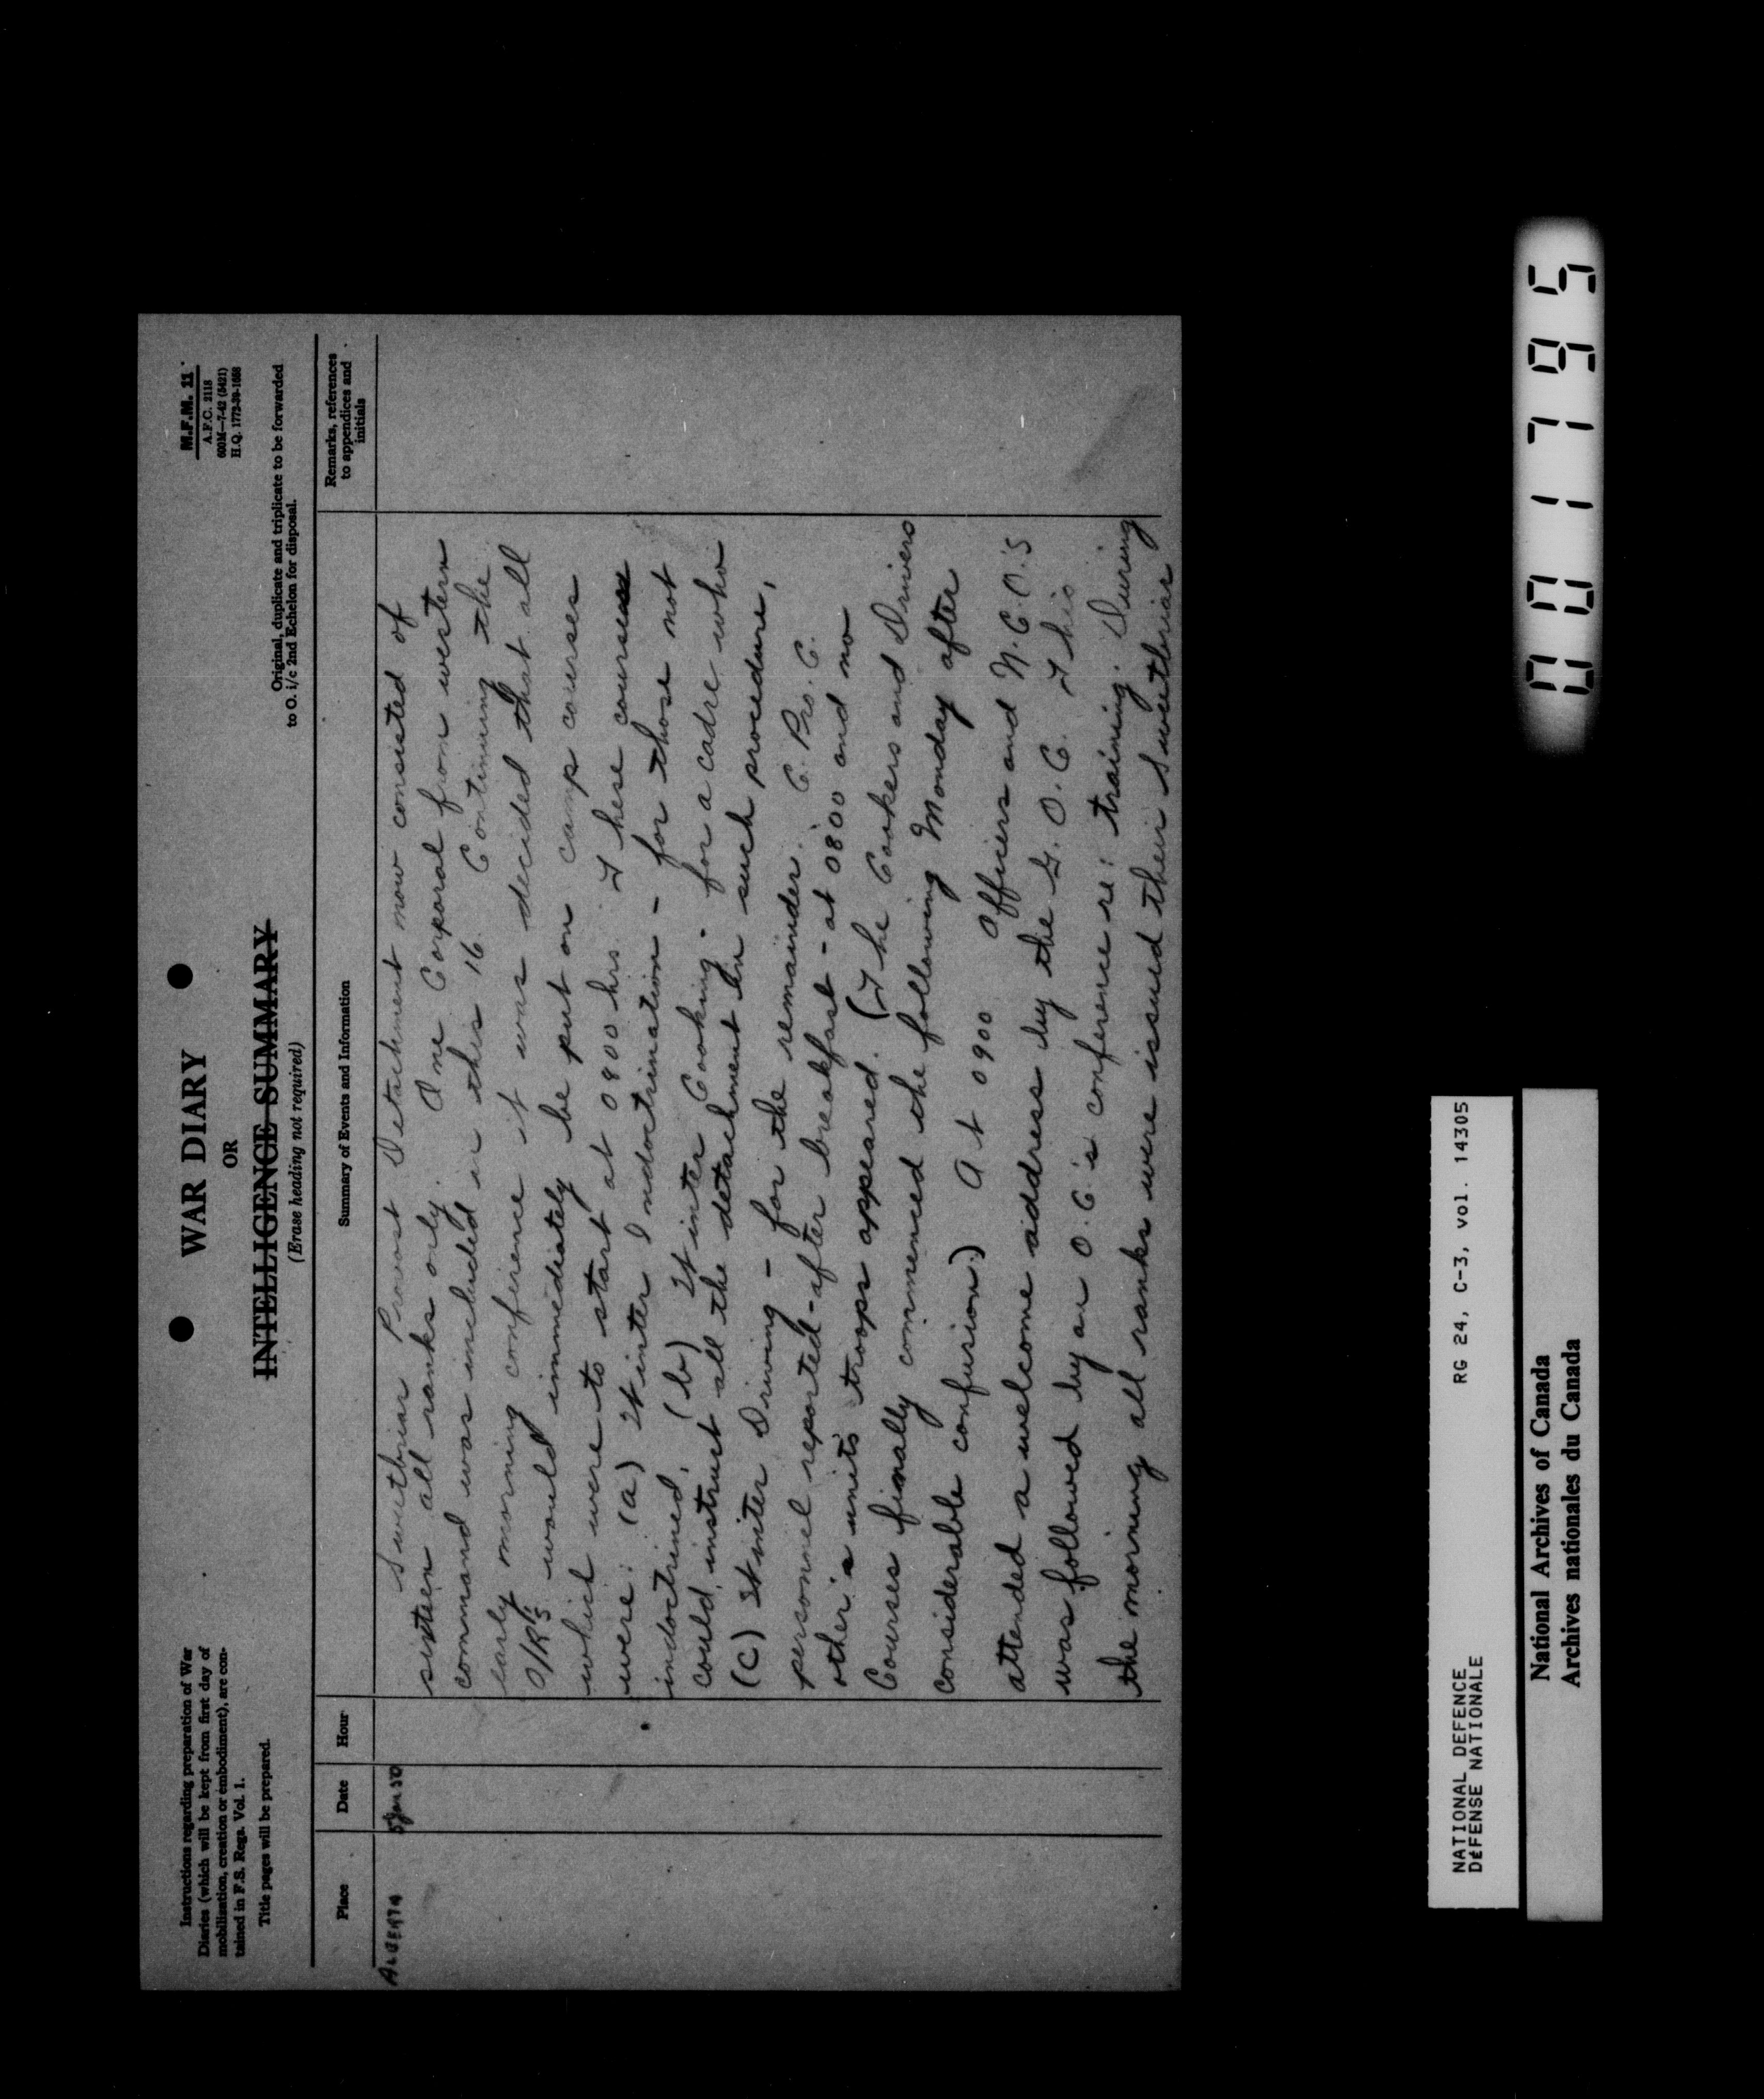 Instructions regarding preparation of War
Diaries (which will be kept from first day of
mobilization, creation or embodiment), are con-
tained in F.S. Regs. Vol. 1.
Title pages will be prepared.
WAR DIARY
OR
INTELLIGENCE SUMMARY
(Erase heading not required)
M.F.M. 11
A.F.C. 2118
600M—7-42 (8421)
H.Q. 1772-39-1658
Original, duplicate and triplicate to be forwarded
to O. i/c 2nd Echelon for disposal.
Place
Date
Hour
Summary of Events and Information
Remarks, references
to appendices and
initials
ALBERTA
5 Jan 50
Sweetbriar Provost Detachment now consisted of
sixteen all ranks only. One Corporal from western
command was included in this 16. Continuing the
early morning conference it was decided that all
O/R's would immediately be put on camp courses
which were to start at 0800 hrs. These courses
were: (a) Winter Indoctrination - for those not
indoctrined, (b) Winter Cooking - for a cadre who
could instruct all the detachment in such procedure,
(c) Winter Driving - for the remainder. C. Pro. C.
personnel reported - after breakfast - at 0800 and no
other's units troops appeared. (The Cookers and Drivers
Courses finally commenced the following Monday after
considerable confusion.) At 0900 Officers and N.C.O.'s
attended a welcome address by the G.O.C. This
was followed by an O.C.'s conference re: training. During
the morning all ranks were issued their Sweetbriar
NATIONAL DEFENCE
DÉFENSE NATIONALE
RG 24, C-3, vol. 14305
National Archives of Canada
Archives nationales du Canada
001795